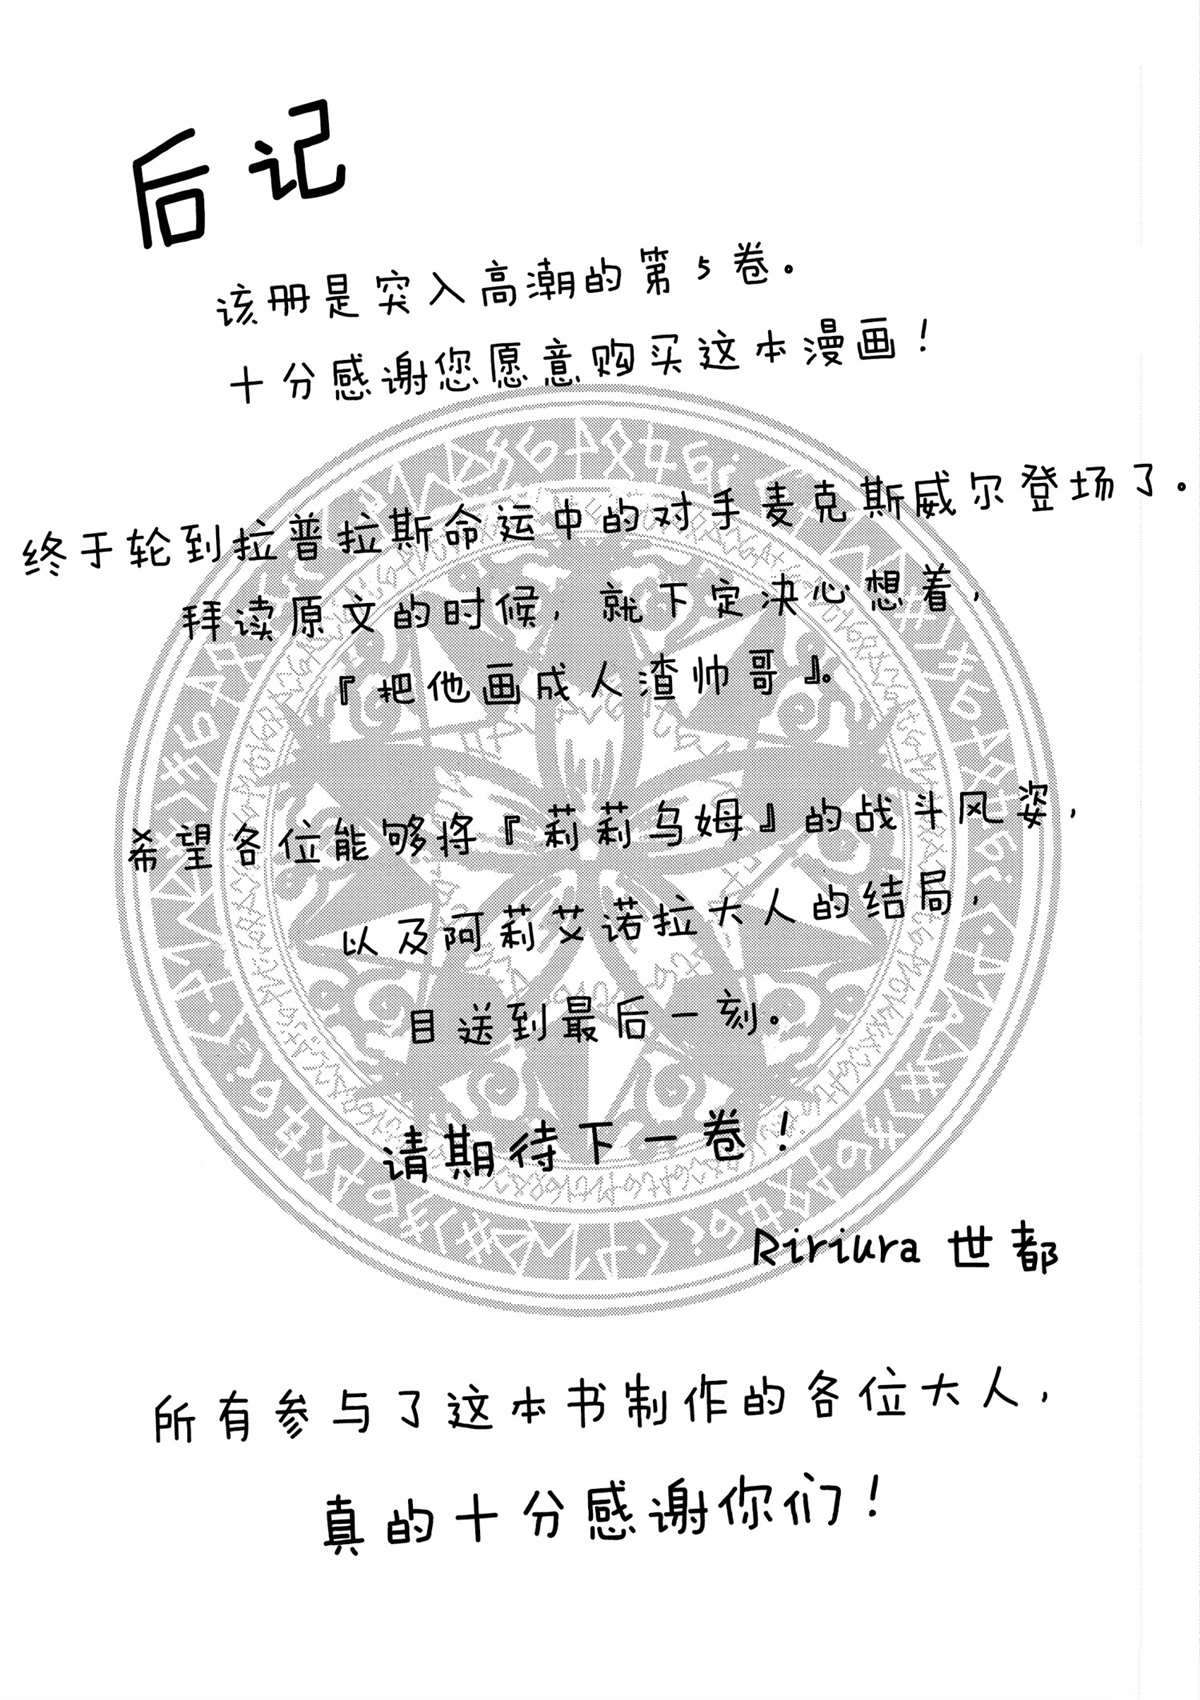 后记
该册是突入高潮的第5卷。
十分感谢您愿意购买这本漫画！
终于轮到拉普拉斯命运中的对手麦克斯威尔登场了。
拜读原文的时候，就下定决心想着，
『把他画成人渣帅哥』。
希望各位能够将『莉莉乌姆』的战斗风姿，
以及阿莉艾诺拉大人的结局，
目送到最后一刻。
请期待下一卷！
Ririura 世都
所有参与了这本书制作的各位大人，
真的十分感谢你们！